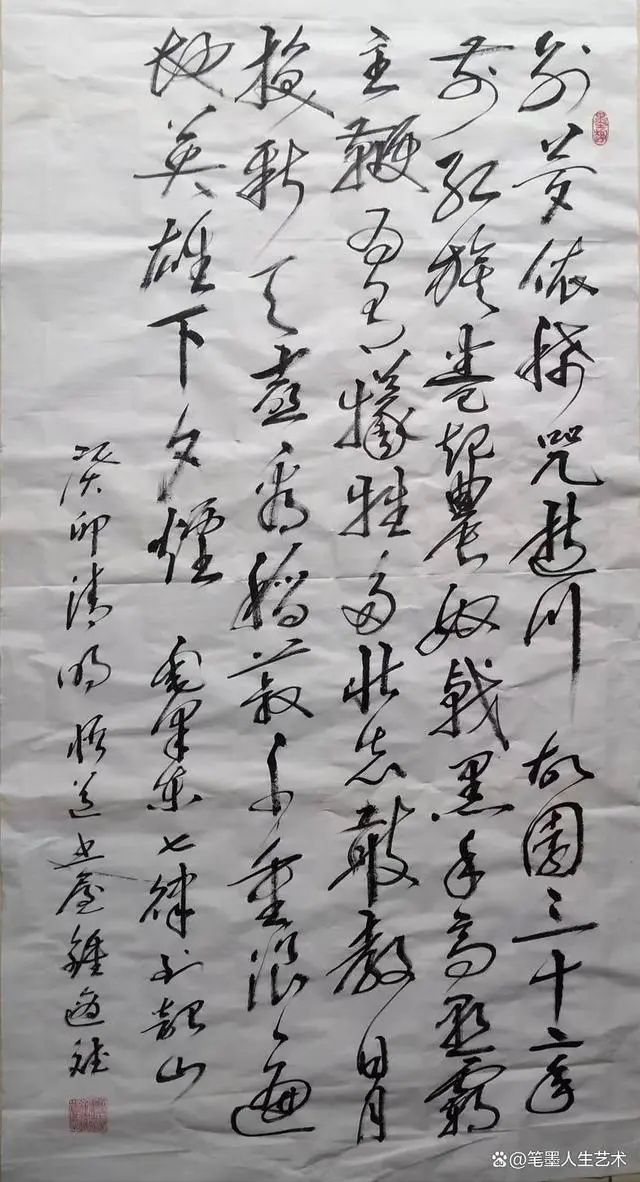 别梦依稀咒逝川故園三十二年
前红旗卷起農奴戟黑手高悬霸
主鞭为有犧牲多壮志敢教日月
换新天喜看稻菽千重浪遍
地英雄下夕煙 毛泽东七律到韶山
癸卯清明 悟道书屋
@笔墨人生艺术